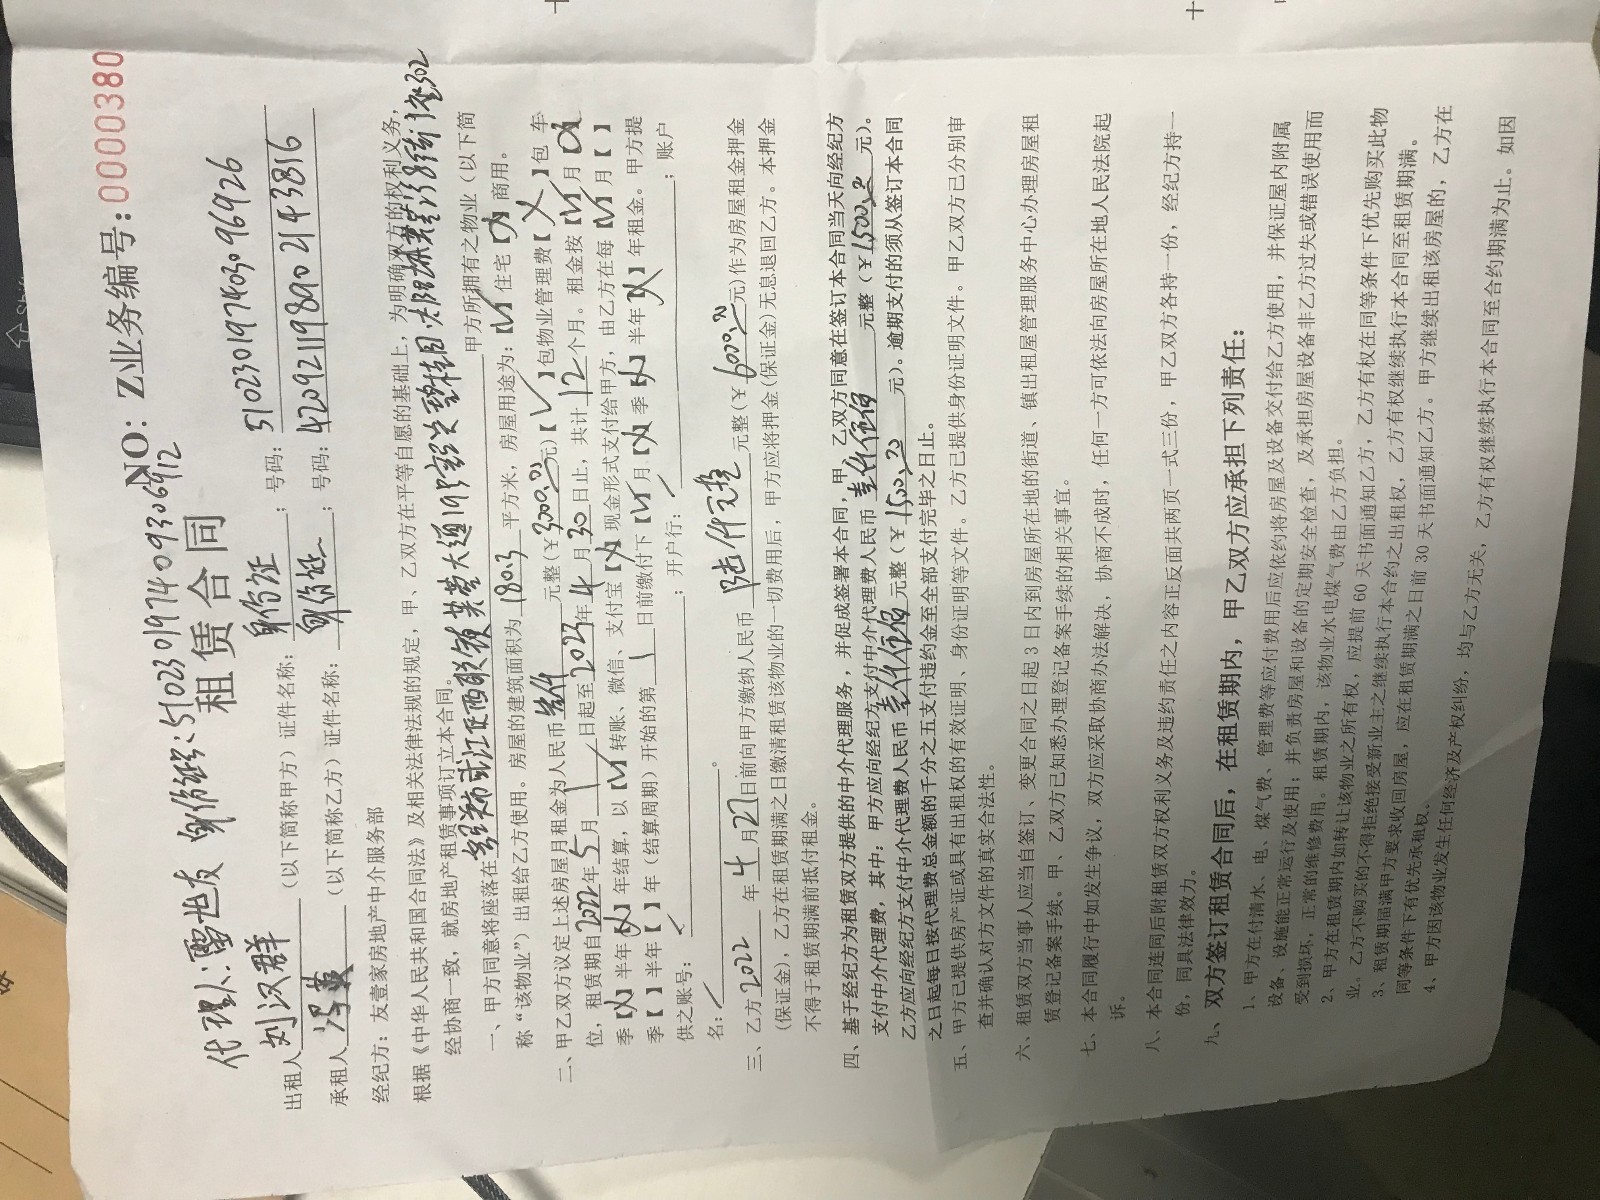 NO: Z业务编号:0000380
代理人:雷世友 身份证号:510230197409306912
租赁合同
出租人 刘汉群 (以下简称甲方)证件名称: 身份证 ; 号码: 510230197403096926
承租人 (以下简称乙方)证件名称: 身份证 ; 号码: 420921198902143816
经纪方: 友壹家房地产中介服务部
根据《中华人民共和国合同法》及相关法律法规的规定, 甲、乙双方在平等自愿的基础上, 为明确双方的权利义务,
经协商一致, 就房地产租赁事项订立本合同。
一、甲方同意将座落在 甲方所拥有之物业(以下简
称“该物业”)出租给乙方使用。房屋的建筑面积为 180.3 平方米, 房屋用途为:【√】住宅【】商用。
二、甲乙双方议定上述房屋月租金为人民币 叁仟 元整(¥3000.00元)【√】包物业管理费【×】包 车
位, 租赁期自 2022年5月1日起至2023年4月30日止, 共计12个月。租金按【√】月【】
季【】半年【】年结算, 以【√】转账、微信、支付宝【】现金形式支付给甲方, 由乙方在每【√】月【 】
季【 】半年【 】年(结算周期)开始的第 1 日前缴付下【√】月【】季【】半年【】年租金。甲方提
供之账号: ; 开户行: ; 账户
名: 。
三、乙方 2022 年 4 月 27 日前向甲方缴纳人民币 陆仟元整 元整(¥6000.00元)作为房屋租金押金
(保证金), 乙方在租赁期满之日缴清租赁该物业的一切费用后, 甲方应将押金(保证金)无息退回乙方。本押金
不得于租赁期满前抵付租金。
四、基于经纪方为租赁双方提供的中介代理服务, 并促成签署本合同, 甲、乙双方同意在签订本合同当天向经纪方
支付中介代理费, 其中: 甲方应向经纪方支付中介代理费人民币 壹仟伍佰 元整(¥1500.00元)。
乙方应向经纪方支付中介代理费人民币 壹仟伍佰 元整(¥1500.00元)。逾期支付的须从签订本合同
之日起每日按代理费总金额的千分之五支付违约金至全部支付完毕之日止。
五、甲方已提供房产证或具有出租权的有效证明、身份证明等文件。乙方已提供身份证明文件。甲乙双方已分别审
查并确认对方文件的真实合法性。
六、租赁双方当事人应当自签订、变更合同之日起3日内到房屋所在地的街道、镇出租屋管理服务中心办理房屋租
赁登记备案手续。甲、乙双方已知悉办理登记备案手续的相关事宜。
七、本合同履行中如发生争议, 双方应采取协商办法解决, 协商不成时, 任何一方可依法向房屋所在地人民法院起
诉。
八、本合同连同后附租赁双方权利义务及违约责任之内容正反面共两页一式三份, 甲乙双方各持一份, 经纪方持一
份, 同具法律效力。
九、双方签订租赁合同后, 在租赁期内, 甲乙双方应承担下列责任:
1、甲方在付清水、电、煤气费、管理费等应付费用后应依约将房屋及设备交付给乙方使用, 并保证屋内附属
设备、设施能正常运行及使用; 并负责房屋和设备的定期安全检查, 及承担房屋设备非乙方过失或错误使用而
受到损坏, 正常的维修费用。租赁期内, 该物业水电煤气费由乙方负担。
2、甲方在租赁期内如转让该物业之所有权, 应提前60天书面通知乙方, 乙方有权在同等条件下优先购买此物
业。乙方不购买的不得拒绝接受新业主之继续执行本合约之出租权, 乙方有权继续执行本合同至租赁期满。
3、租赁期届满甲方要求收回房屋, 应在租赁期满之日前30天书面通知乙方。甲方继续出租该房屋的, 乙方在
同等条件下有优先承租权。
4、甲方因该物业发生任何经济及产权纠纷, 均与乙方无关, 乙方有权继续执行本合同至合约期满为止。如因